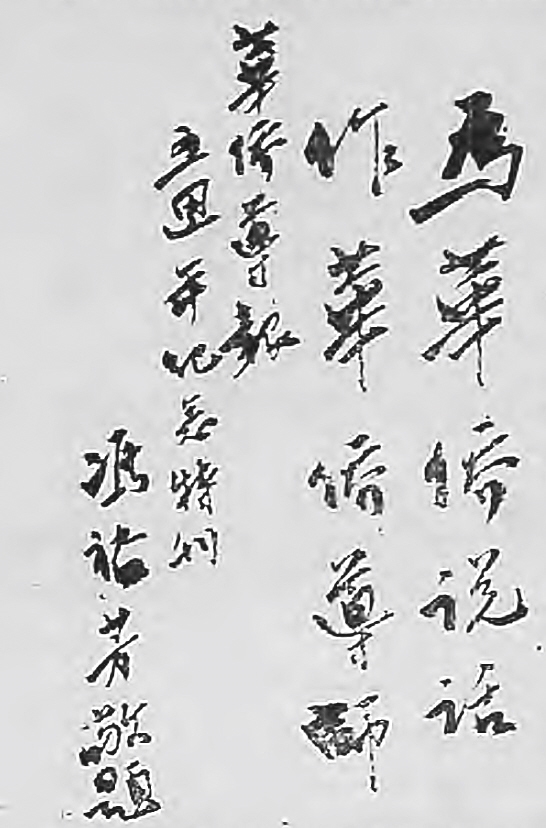 為華僑說話
作華僑導師
華僑導報
五週年紀念特刊
敬題